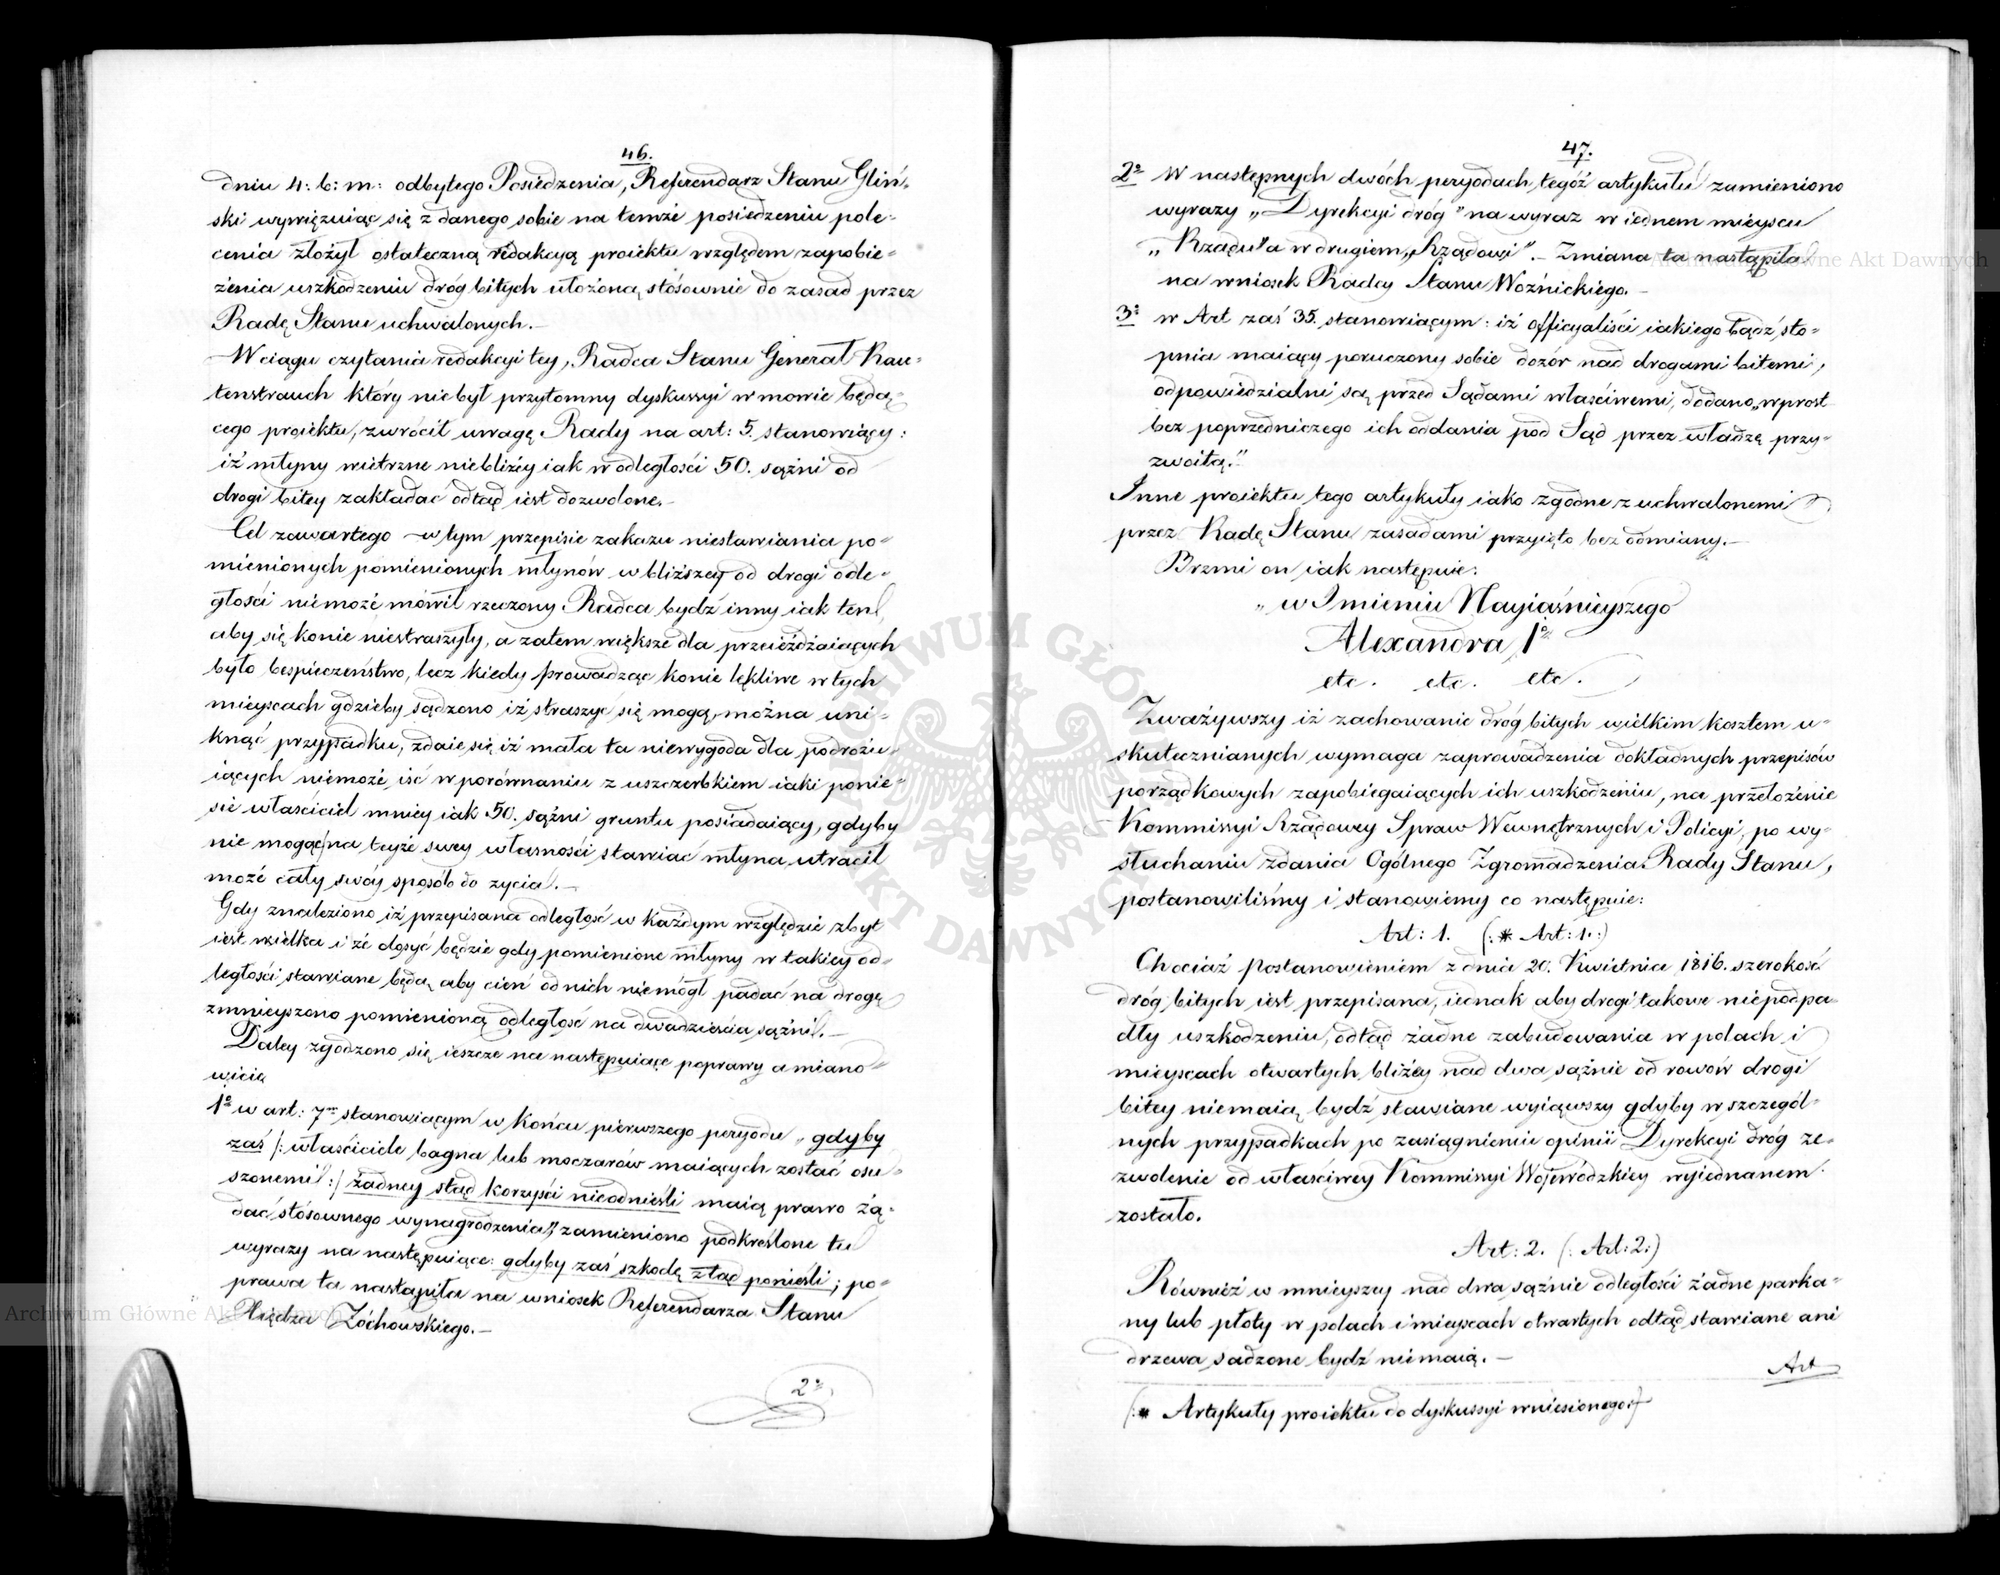 46.
dniu 4. b: m: odbytego Posiedzenia, Referendarz Stanu Gliń-
ski wywięzuiąc się z danego sobie na temże posiedzeniu pole-
cenia złożył ostateczną redakcyą proiektu względem zapobie-
żenia uszkodzeniu dróg bitych ułożoną stósownie do zasad przez
Radę Stanu uchwalonych.—
W ciągu czytania redakcyi tey, Radca Stanu Generał Rau-
tenstrauch który nie był przytomny dyskussyi w mowie będą-
cego proiektu, zwrócił uwagę Rady na art: 5. stanowiący:
iż młyny wietrzne niebliżéy iak w odległości 50. sążni od
drogi bitey zakładać odtąd iest dozwolone.—
Cel zawartego w tym przepisie zakazu niestawiania po-
mienionych pomienionych młynów w bliższey od drogi odle-
głości niemoże mówił rzeczony Radca bydź inny iak ten,
aby się konie niestraszyły, a zatem większe dla przeieżdżaiących
było bespieczeństwo, lecz kiedy prowadząc konie lękliwe w tych
mieyscach gdzieby sądzono iż straszyć się mogą, można uni-
knąć przypadku, zdaie się iż mała ta niewygoda dla podróżu-
iących niemoże iść w porównaniu z uszczerbkiem iaki ponie-
sie właściciel mniey iak 50. sążni gruntu posiadaiący, gdyby
nie mogąc na teyże swey własności stawiać młyna utracił
może cały swóy sposób do życia.—
Gdy znaleziono iż przepisana odległość w każdym względzie zbyt
iest wielka i że dosyć będzie gdy pomienione młyny w takiey od-
ległości stawiane będą, aby cień od nich niemógł padać na drogę
zmnieyszono pomienioną odległość na dwadzieścia sążni.—
Daley zgodzono się ieszcze na następuiące poprawy a miano-
wicie
1º w art: 7ᵐ stanowiącym w końcu pierwszego peryodu „gdyby
zaś /: właściciele bagna lub moczarów maiących zostać osu-
szonemi :/ żadney stąd korzyści nieodnieśli maią prawo żą-
dać stósownego wynagrodzenia", zamieniono podkreślone tu
wyrazy na następuiące: gdyby zaś szkodę ztąd ponieśli; po-
prawa ta nastąpiła na wniosek Referendarza Stanu
Xiędza Zóchowskiego.—
2º
47.
2º W następnych dwóch peryodach tegóż artykułu zamieniono
wyrazy „Dyrekcyi dróg" na wyraz w iednem mieyscu
„Rządu" a w drugiem „Rządowi".— Zmiana ta nastąpiła
na wniosek Radcy Stanu Woźnickiego.—
3º w Art zaś 35. stanowiącym: iż officyaliści iakiego bądź sto-
pnia maiący poruczony sobie dozór nad drogami bitemi,
odpowiedzialni są przed Sądami właściwemi, dodano „wprost
bez poprzedniczego ich oddania pod Sąd przez władzę przy-
zwoitą."
Inne proiektu tego artykuły iako zgodne z uchwalonemi
przez Radę Stanu zasadami przyięto bez odmiany.—
Brzmi on iak następuie:
„w Imieniu Nayiaśnieyszego
Alexandra 1º
etc. etc. etc.
Zważywszy iż zachowanie dróg bitych wielkim kosztem u-
skutecznianych wymaga zaprowadzenia dokładnych przepisów
porządkowych zapobiegaiących ich uszkodzeniu, na przełożenie
Kommissyi Rządowey Spraw Wewnętrznych i Policyi, po wy-
słuchaniu zdania Ogólnego Zgromadzenia Rady Stanu,
postanowiliśmy i stanowiemy co następuie:
Art: 1. (: * Art: 1. :)
Chociaż postanowieniem z dnia 20. Kwietnia 1816. szerokość
dróg bitych iest przepisana, iednak aby drogi takowe niepodpa-
dły uszkodzeniu, odtąd żadne zabudowania w polach i
mieyscach otwartych bliżéy nad dwa sążnie od rowów drogi
bitey niemaią bydź stawiane wyiąwszy gdyby w szczegól-
nych przypadkach po zasiągnieniu opinii Dyrekcyi dróg ze-
zwolenie od właściwey Kommissyi Wojewódzkiey wyiednanem
zostało.
Art: 2. (: Art: 2 :)
Również w mnieyszey nad dwa sążnie odległości żadne parka-
ny lub płoty w polach i mieyscach otwartych odtąd stawiane ani
drzewa sadzone bydź niemaią.—
Art
(: * Artykuły proiektu do dyskussyi wniesionego :)
Archiwum Główne Akt Dawnych
Archiwum Główne Akt Dawnych
ARCHIWUM GŁÓWNE AKT DAWNYCH